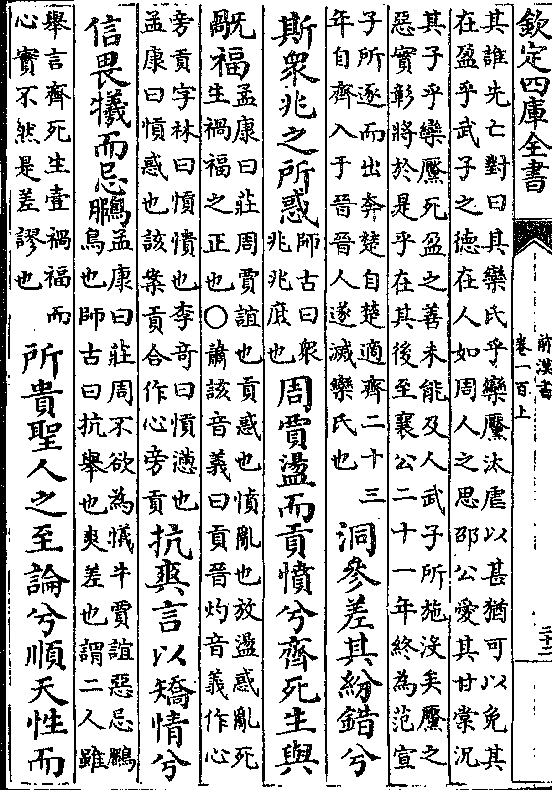 欽定四庫全書
前漢書
卷一百上
其誰先亡對曰其欒氏乎欒黶汰虐以甚猶可以免其
在盈乎武子之德在人如周人之思邵公愛其甘棠況
其子乎欒黶死盈之善未能及人武子所施沒矣黶之
惡實彰將於是乎在其後至襄公二十一年終為范宣
子所逐而出奔楚自楚適齊二十三
年自齊入于晉晉人遂滅欒氏也
洞參差其紛錯兮
斯衆兆之所惑
師古曰衆
兆兆庶也
周賈盪而貢憤兮齊死生與
旤福
孟康曰莊周賈誼也貢惑也憤亂也放盪惑亂死
生禍福之正也○蕭該音義曰貢晉灼音義作心
旁貢字林曰憤憒也李奇曰憤懣也
孟康曰憤惑也該案貢合作心旁貢
抗爽言以矯情兮
信畏犧而忌鵩
孟康曰莊周不欲為犧牛賈誼惡忌鵩
鳥也師古曰抗舉也爽差也謂二人雖
舉言齊死生壹禍福而
心實不然是差謬也
所貴聖人之至論兮順天性而